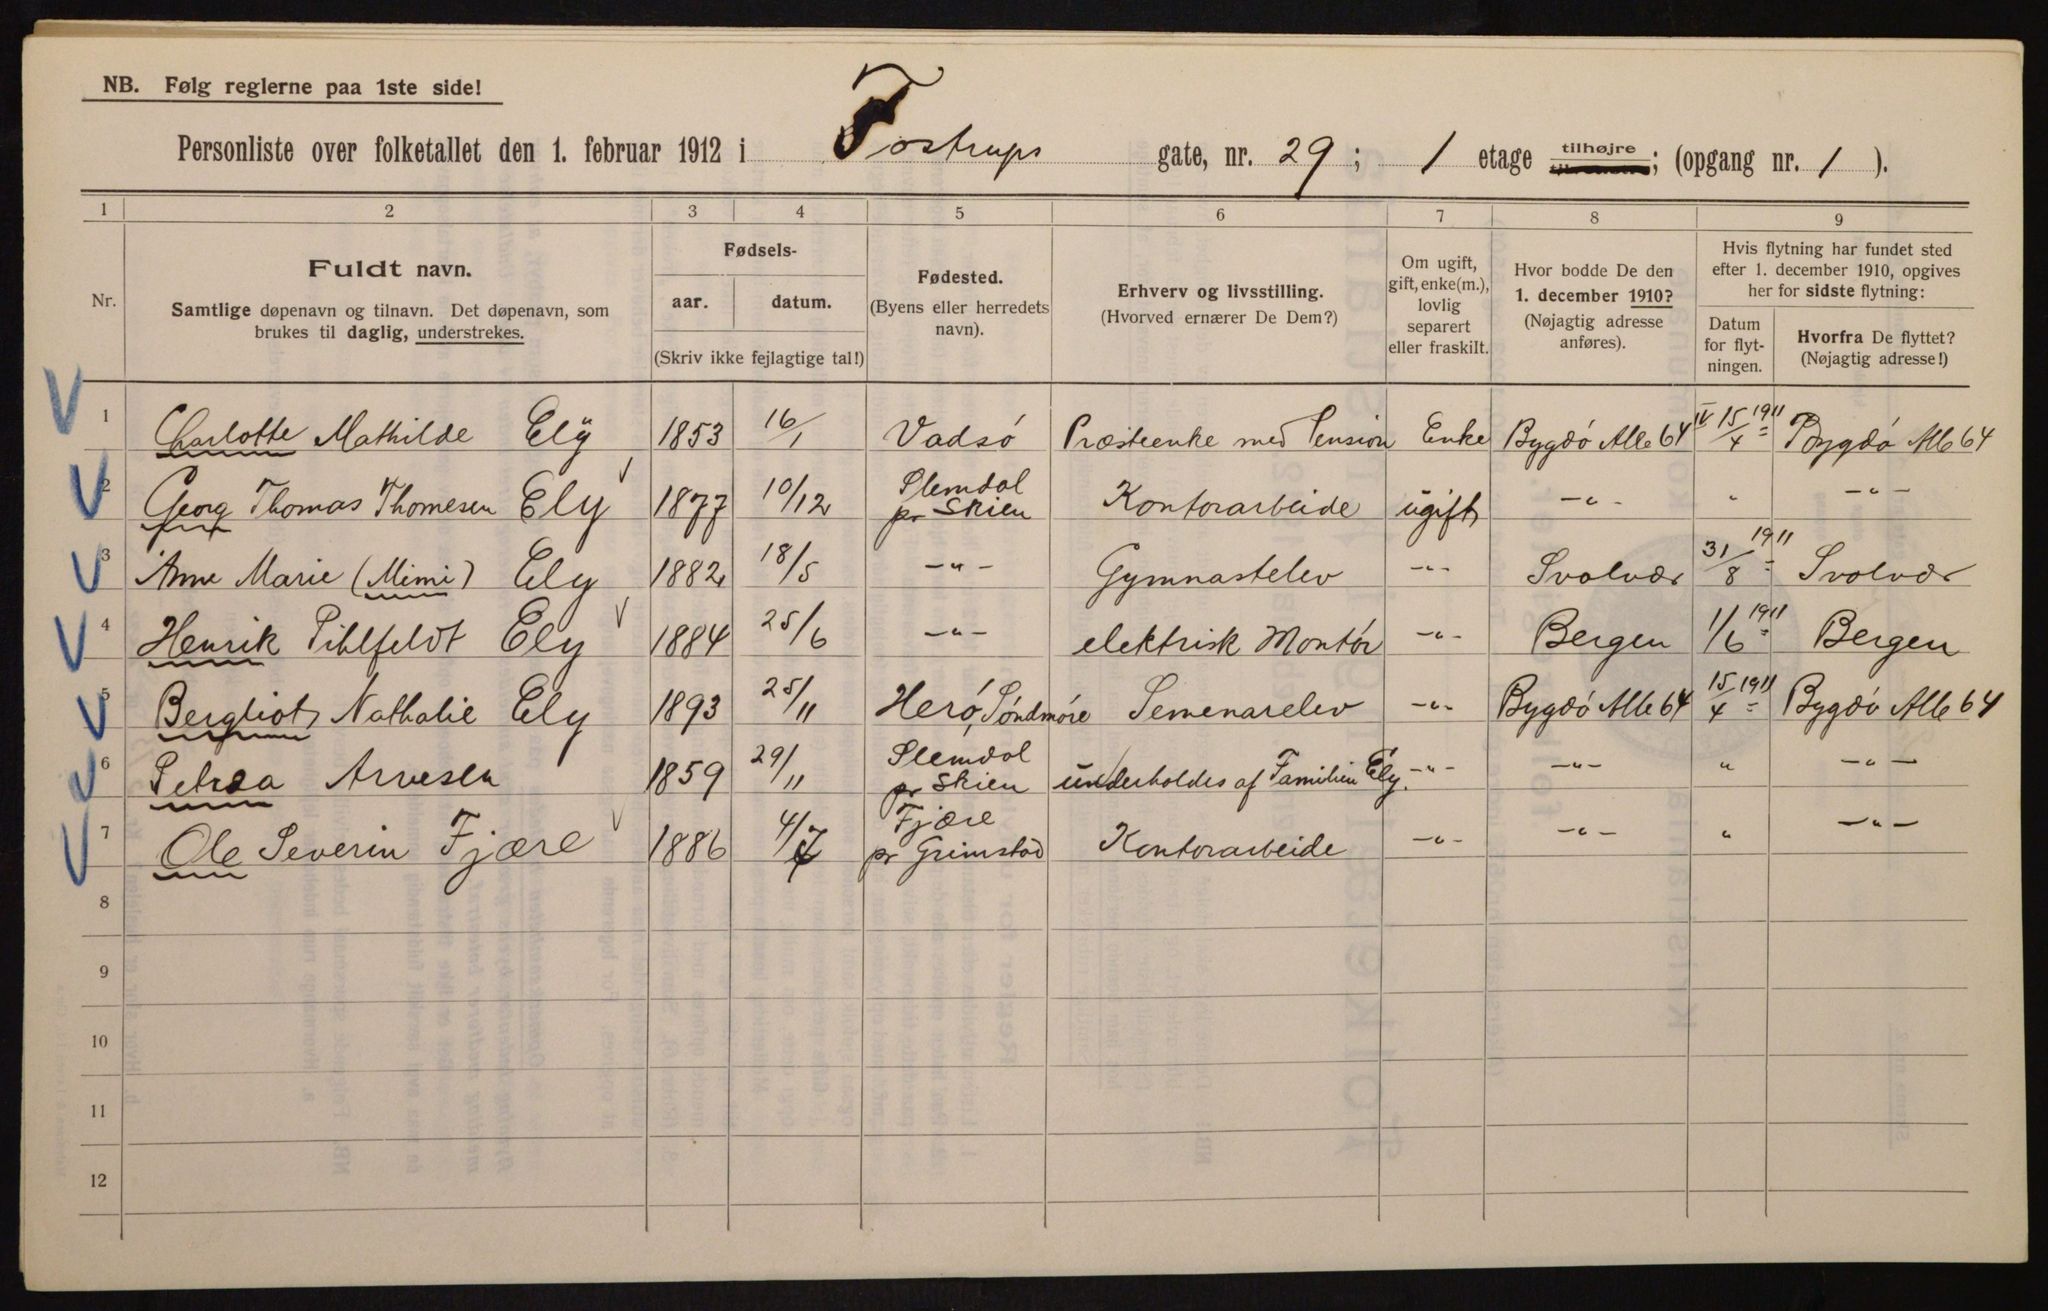 NB. Følg reglerne paa 1ste side!
Personliste over folketallet den 1. februar 1912 i Tostrups gate, nr. 29; 1 etage tilhøjre; (opgang nr. 1).
1 2 3 4 5 6 7 8 9
Nr.
Fuldt navn.
Samtlige døpenavn og tilnavn. Det døpenavn, som
brukes til daglig, understrekes.
Fødsels-
aar. datum.
(Skriv ikke fejlagtige tal!)
Fødested.
(Byens eller herredets
navn).
Erhverv og livsstilling.
(Hvorved ernærer De Dem?)
Om ugift,
gift, enke(m.),
lovlig
separert
eller fraskilt.
Hvor bodde De den
1. december 1910?
(Nøjagtig adresse
anføres).
Hvis flytning har fundet sted
efter 1. december 1910, opgives
her for sidste flytning:
Datum
for flyt-
ningen.
Hvorfra De flyttet?
(Nøjagtig adresse!)
1 Charlotte Mathilde Elÿ 1853 16/1 Vadsö Præsteenke med Pension Enke Bygdö Alle 64 IV 15/4 1911 Bygdö Alle 64
2 Georg Thomas Thomesen Ely 1877 10/12 Slemdal pr Skien Kontorarbeide ugift -"- " -"-
3 Anne Marie (Mimi) Ely 1882 18/5 -"- Gymnastelev -"- Svolvær 31/8 1911 Svolvær
4 Henrik Pihlfeldt Ely 1884 25/6 -"- elektrisk Montör -"- Bergen 1/6 1911 Bergen
5 Bergliot Nathalie Ely 1893 25/11 Herö, Söndmöre Semenarelev -"- Bygdö Alle 64 15/4 1911 Bygdö Alle 64
6 Petrea Arvesen 1859 29/11 Slemdal pr Skien underholdes af Familien Ely. -"- -"- " -"-
7 Ole Severin Fjære 1886 4/7 Fjære pr Grimstad Kontorarbeide -"- -"- " -"-
8
9
10
11
12